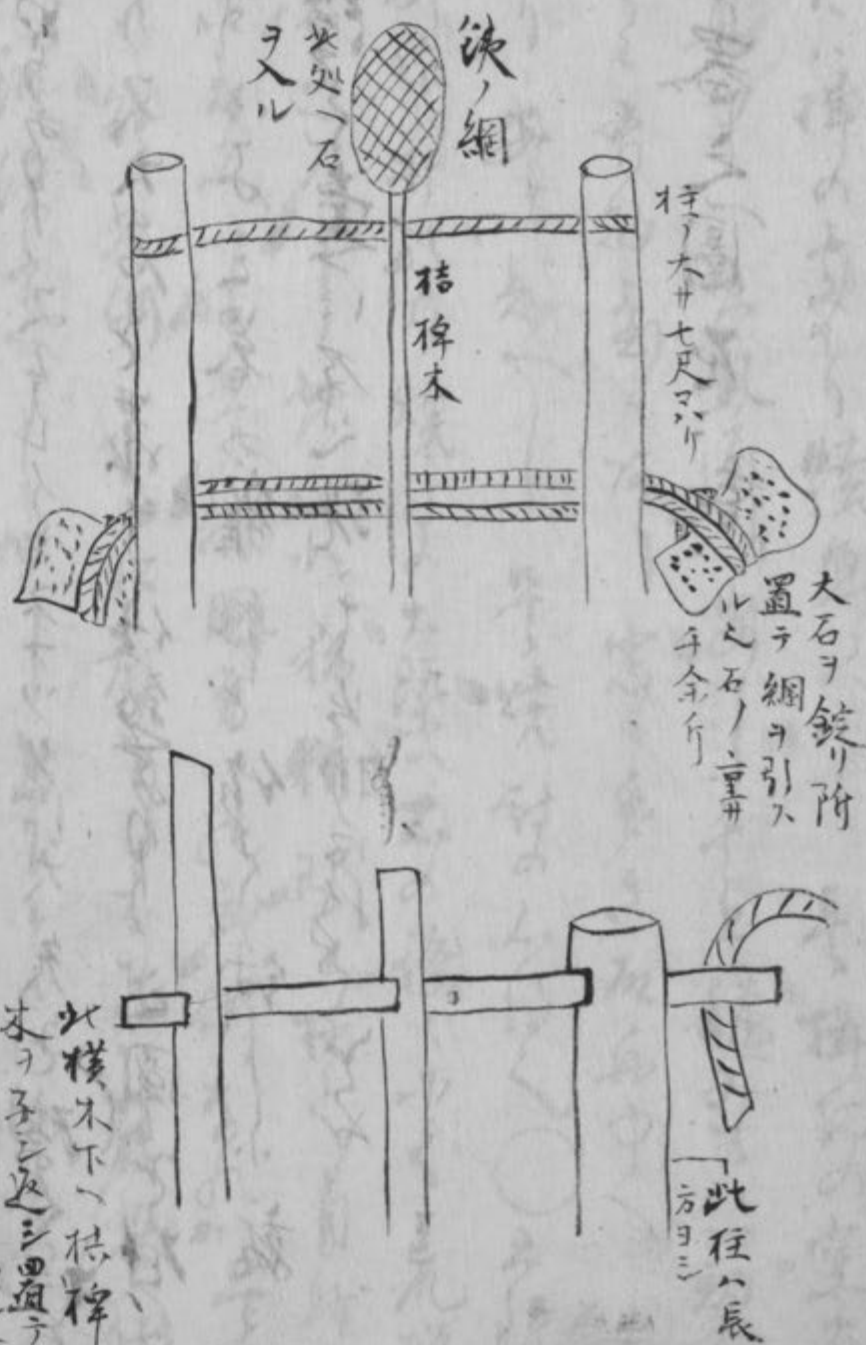 鉄ノ網
此処ヘ石
ヲ入ル
桔槹木
柱ノ大サ七尺マハリ
大石ヲ錠リ附
置テ綱ヲ引ス
ル也石ノ重サ
千余斤
此柱ハ長
方ヨシ
此横木下ヘ桔槹
木ヲ子シ返シ